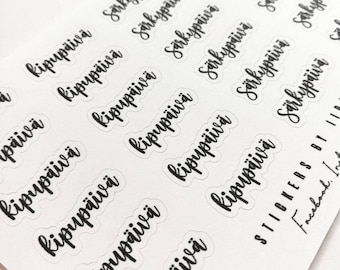 kipupäivä Särkypäivä Särkypäivä
kipupäivä Särkypäivä Särkypäivä
kipupäivä kipupäivä Särkypäivä Särkypäivä
kipupäivä kipupäivä Särkypäivä
kipupäivä kipupäivä
kipupäivä
STICKERS BY
Facebook